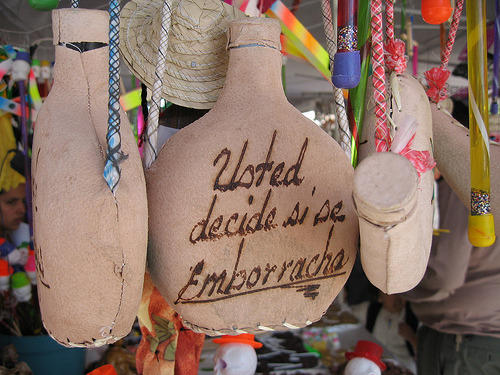 Usted
decide si se
Emborracha